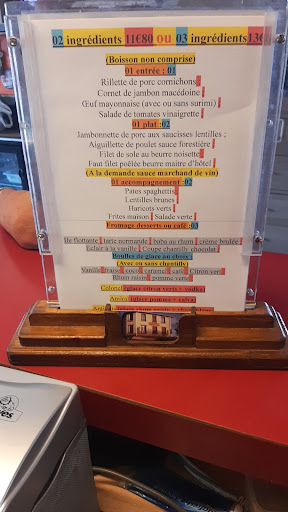 02 ingrédients 11€80 ou 03 ingrédients 13€
(Boisson non comprise)
01 entrée : 01
Rillette de porc cornichons
Cornet de jambon macédoine
Œuf mayonnaise (avec ou sans surimi)
Salade de tomates vinaigrette
01 plat : 02
Jambonnette de porc aux saucisses lentilles ;
Aiguillette de poulet sauce forestière
Filet de sole au beurre noisette
Faut filet poêlée beurre maitre d'hôtel
(A la demande sauce marchand de vin)
01 accompagnement : 02
Pates spaghettis
Lentilles brunes
Haricots verts
Frites maison Salade verte
Fromage desserts ou café : 03
Ile flottante tarte normande baba au rhum crème brulée
Eclair à la vanille Coupe chantilly chocolat
Boulles de glace au choix
(Avec ou sans chantilly)
Vanille fraise coco caramel café Citron vert
Rhum raisin pomme verte
Colonel (glace citron verts + vodka)
(glace pomme + calva)